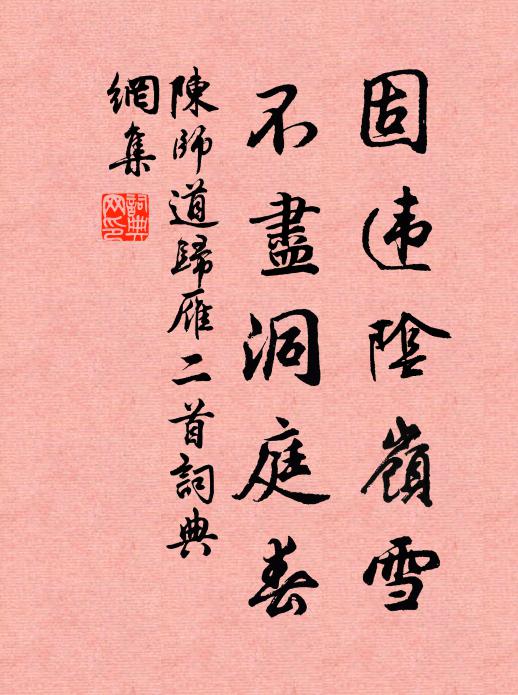 固违陰嶺雪
不盡洞庭春
陳師道歸雁二首詞典
網集
詞典
网印